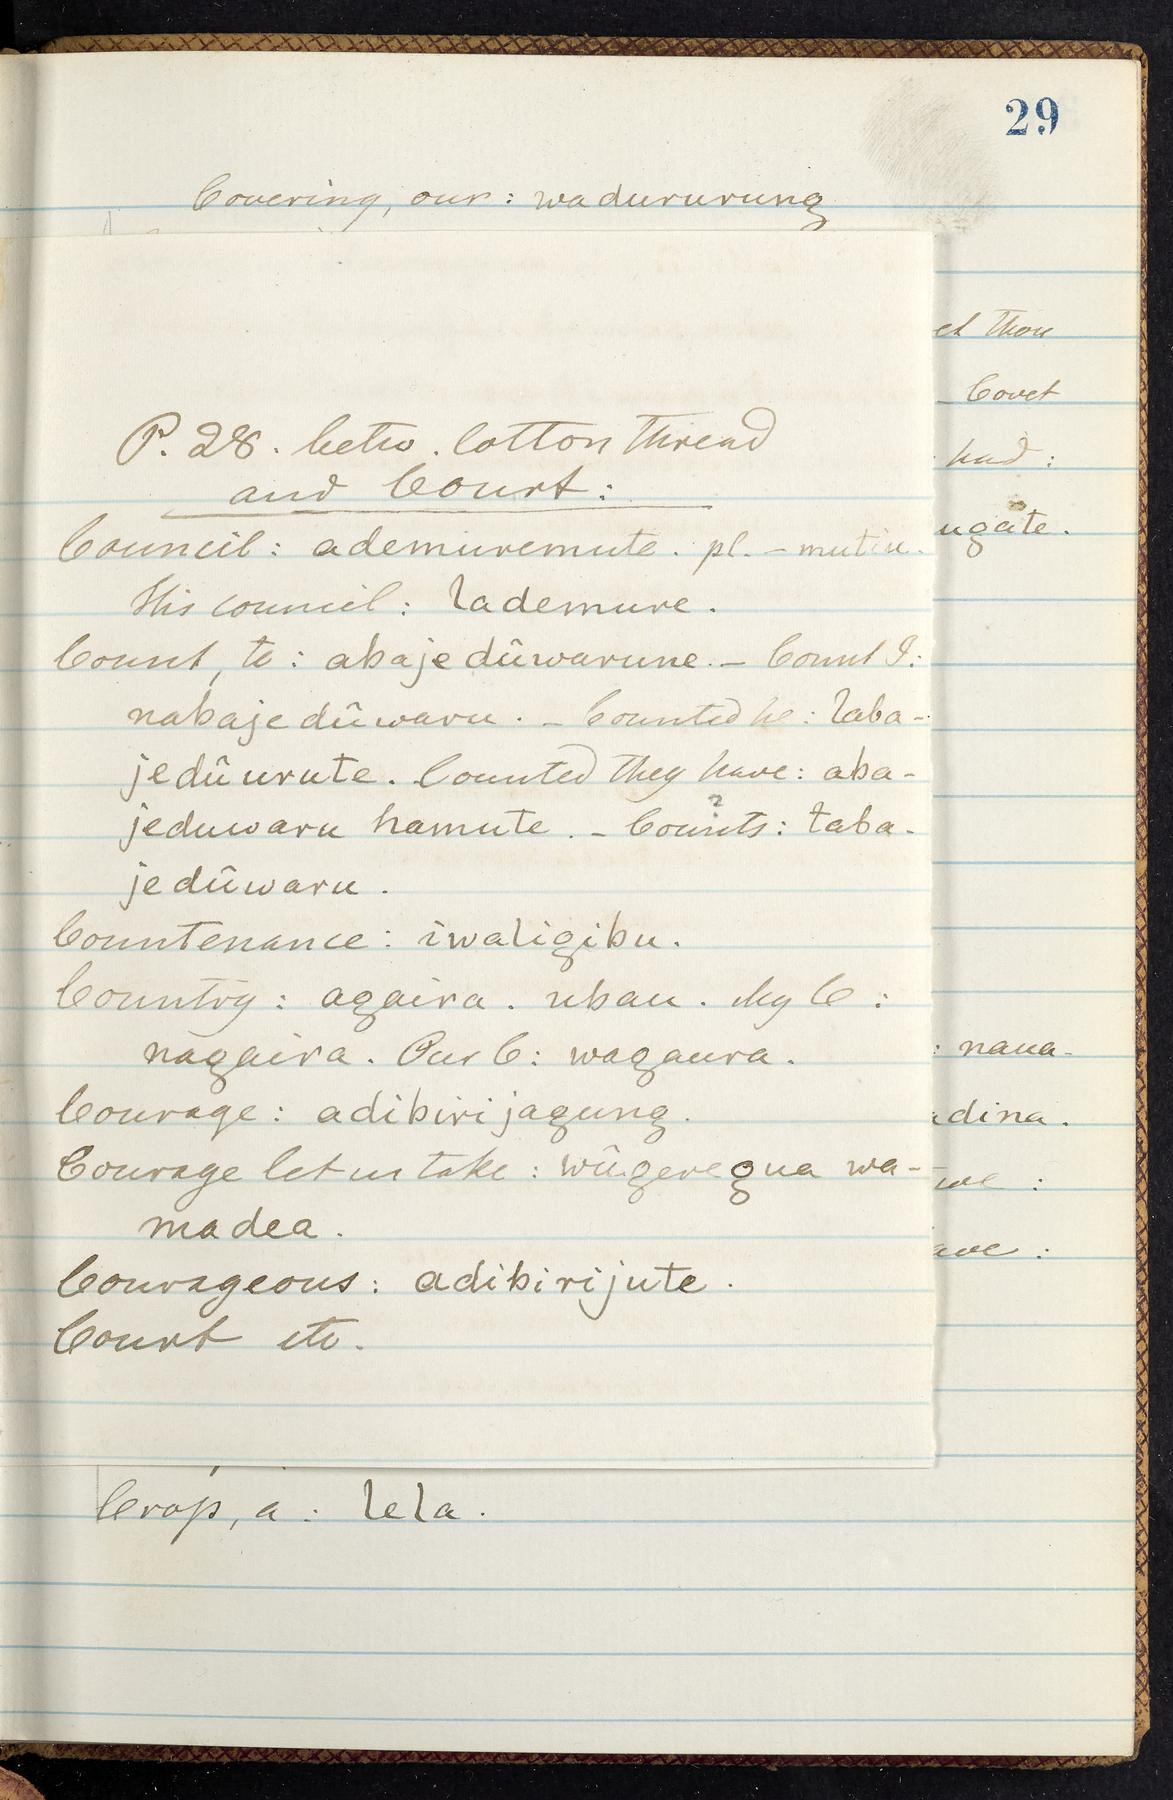 29
Covering, our : wadururung
et thou
- Covet
had :
ugate.
P. 28. betw. Cotton thread
and Court :
Council : ademuremute. pl. - mutiu.
His council : lademure.
Count, to : abajedûwarune. - Count I :
nabajedûwaru. - Counted he : laba-
jedûurute. Counted they have : aba-
jeduwaru hamute. - Counts : taba-
?
jedûwaru.
Countenance : iwaligibu.
Country : agaira. ubau. My C :
nagaira. Our C : wagaura.
: naua-
Courage : adibirijagung.
dina.
Courage let us take : wûgeregua wa-
madea.
ave :
Courageous : adibirijute.
Court etc.
Crop, a : lela.